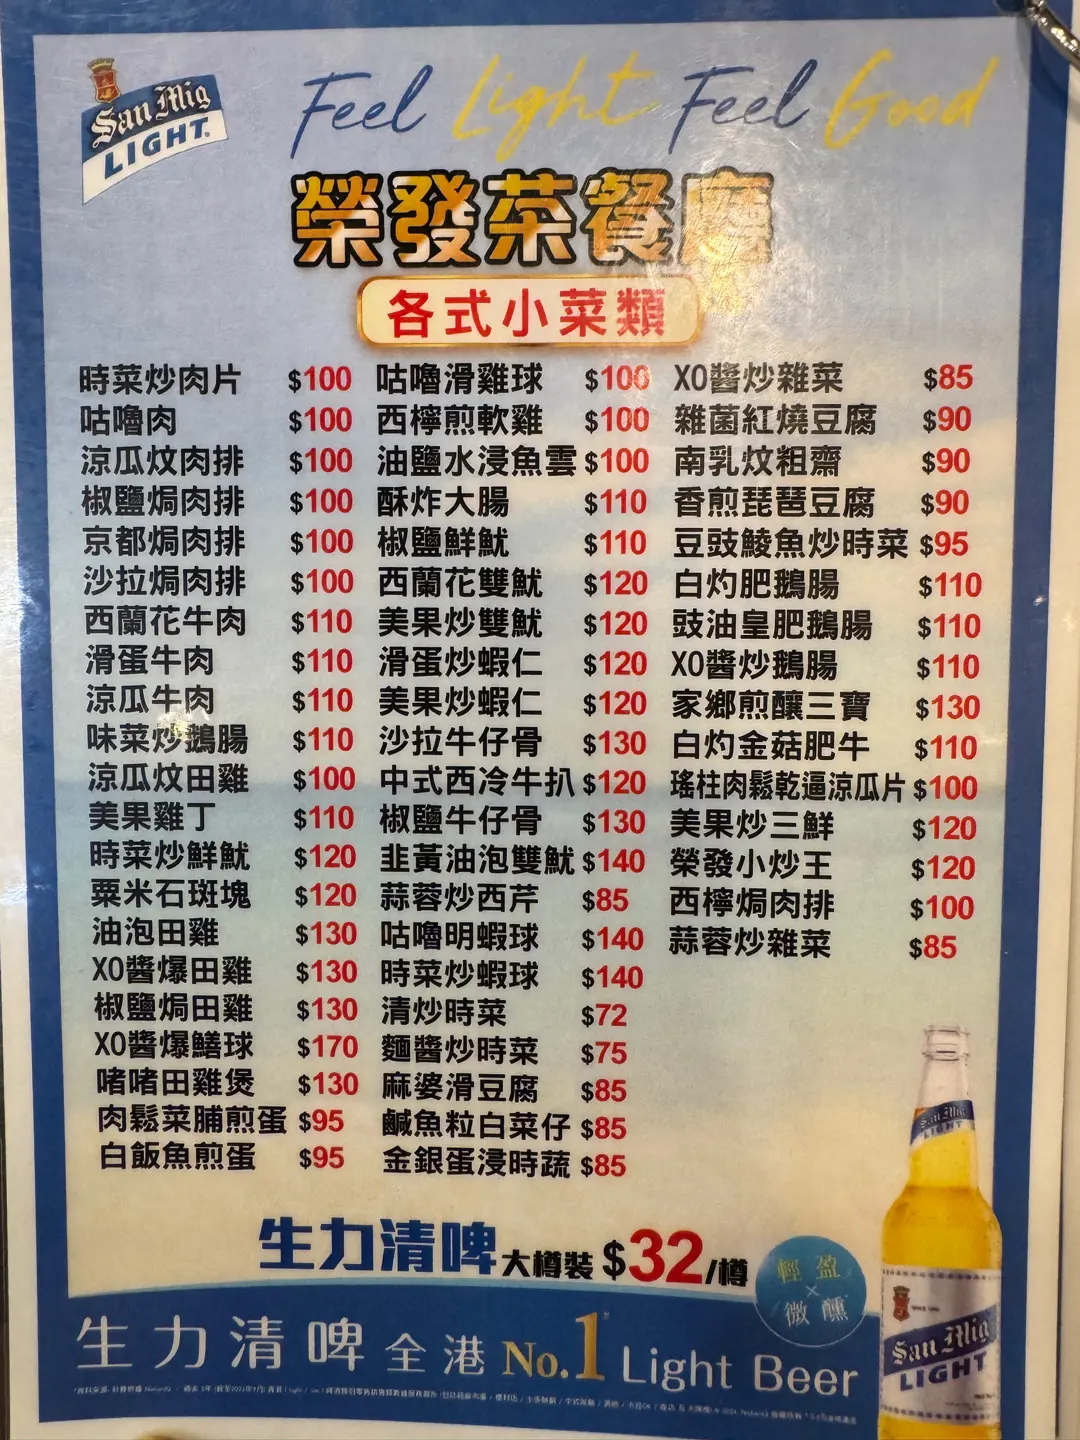 San Mig
LIGHT
Feel Light Feel Good
榮發茶餐廳
各式小菜類
時菜炒肉片 $100
咕嚕肉 $100
涼瓜炆肉排 $100
椒鹽焗肉排 $100
京都焗肉排 $100
沙拉焗肉排 $100
西蘭花牛肉 $110
滑蛋牛肉 $110
涼瓜牛肉 $110
味菜炒鵝腸 $110
涼瓜炆田雞 $100
美果雞丁 $110
時菜炒鮮魷 $120
粟米石斑塊 $120
油泡田雞 $130
XO醬爆田雞 $130
椒鹽焗田雞 $130
XO醬爆鱔球 $170
啫啫田雞煲 $130
肉鬆菜脯煎蛋 $95
白飯魚煎蛋 $95
咕嚕滑雞球 $100
西檸煎軟雞 $100
油鹽水浸魚雲 $100
酥炸大腸 $110
椒鹽鮮魷 $110
西蘭花雙魷 $120
美果炒雙魷 $120
滑蛋炒蝦仁 $120
美果炒蝦仁 $120
沙拉牛仔骨 $130
中式西冷牛扒 $120
椒鹽牛仔骨 $130
韭黃油泡雙魷 $140
蒜蓉炒西芹 $85
咕嚕明蝦球 $140
時菜炒蝦球 $140
清炒時菜 $72
麵醬炒時菜 $75
麻婆滑豆腐 $85
鹹魚粒白菜仔 $85
金銀蛋浸時蔬 $85
XO醬炒雜菜 $85
雜菌紅燒豆腐 $90
南乳炆粗齋 $90
香煎琵琶豆腐 $90
豆豉鯪魚炒時菜 $95
白灼肥鵝腸 $110
豉油皇肥鵝腸 $110
XO醬炒鵝腸 $110
家鄉煎釀三寶 $130
白灼金菇肥牛 $110
瑤柱肉鬆乾逼涼瓜片 $100
美果炒三鮮 $120
榮發小炒王 $120
西檸焗肉排 $100
蒜蓉炒雜菜 $85
生力清啤 大樽裝 $32/樽
輕盈
×
微醺
生力清啤 全港 No.1 Light Beer
San Mig
LIGHT
San Mig
LIGHT